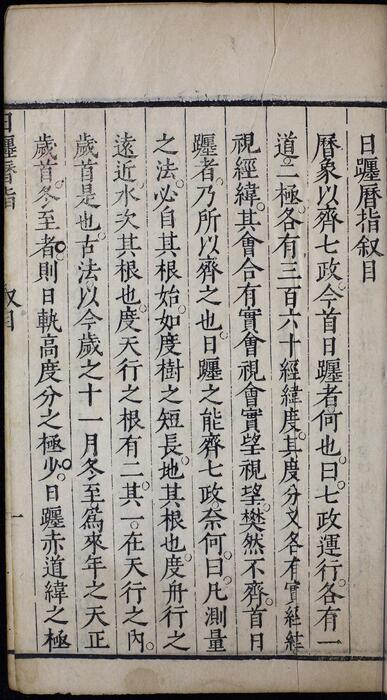 日躔曆指叙目
曆象以齊七政今首日躔者何也曰七政運行各有一
道二極各有三百六十經緯度其度分又各有實經緯
視經緯其會合有實會視會實望視望樊然不齊首日
躔者乃所以齊之也日躔之能齊七政奈何曰凡測量
之法必自其根始如度樹之短長地其根也度舟行之
遠近水次其根也度天行之根有二其一在天行之內
歲首是也古法以今歲之十一月冬至為來年之天正
歲首冬至者則日軌高度分之極少日躔赤道緯之極
日躔曆指
叙目
一